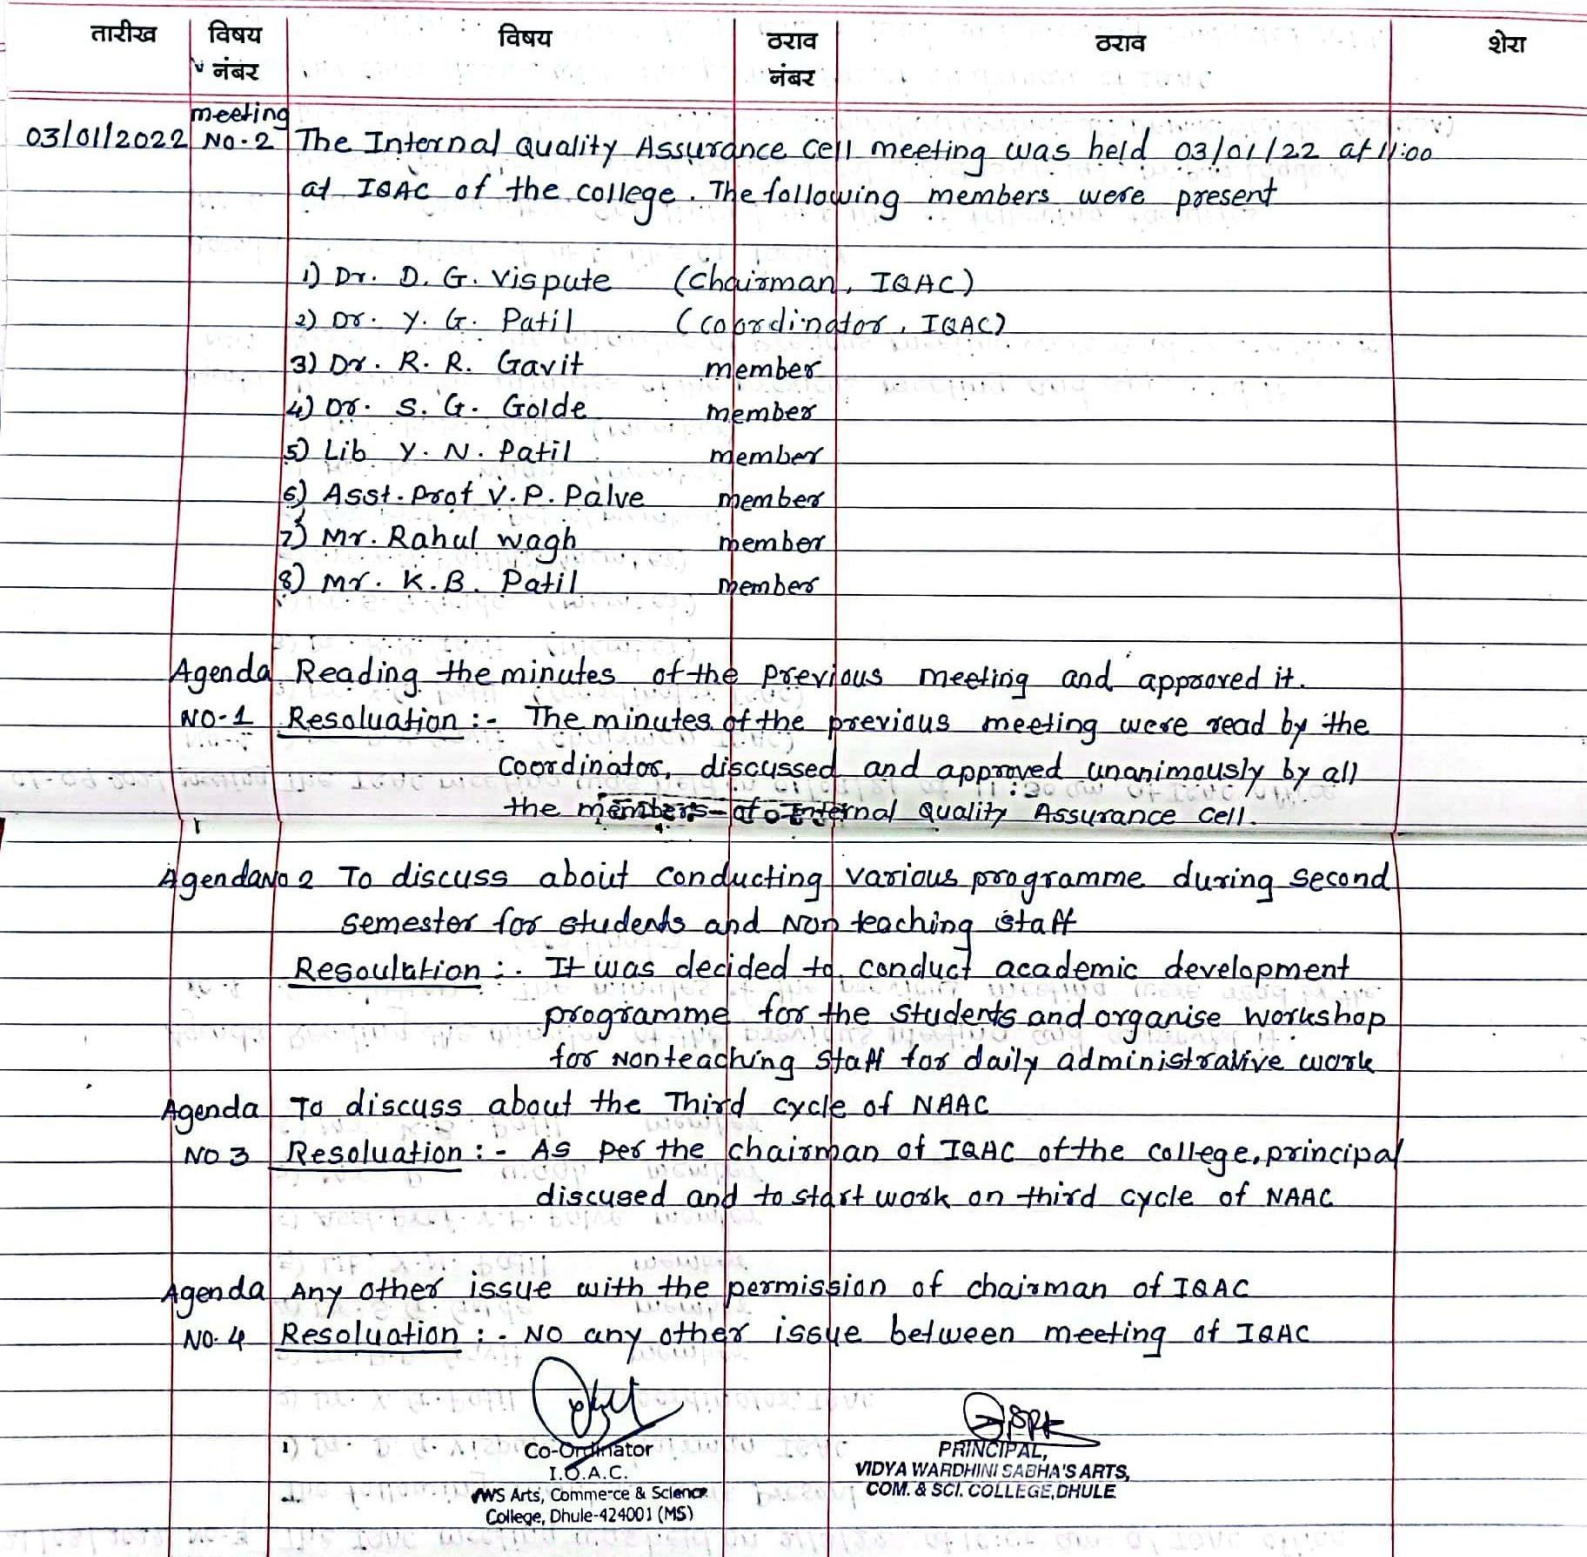 तारीख विषय नंबर विषय ठराव नंबर ठराव शेरा
meeting
03/01/2022 No-2 The Internal Quality Assurance cell meeting was held 03/01/22 at 11:00
at IQAC of the college. The following members were present
1) Dr. D. G. Vispute (Chairman, IQAC)
2) Dr. Y. G. Patil (Coordinator, IQAC)
3) Dr. R. R. Gavit member
4) Dr. S. G. Golde member
5) Lib Y. N. Patil member
6) Asst. Prof V. P. Palve member
7) Mr. Rahul wagh member
8) Mr. K. B. Patil member
Agenda Reading the minutes of the previous meeting and approved it.
NO-1 Resoluation :- The minutes of the previous meeting were read by the
Coordinator, discussed and approved unanimously by all
the members of Internal Quality Assurance Cell.
Agenda No 2 To discuss about conducting various programme during second
semester for students and Non teaching staff
Resoulation :- It was decided to conduct academic development
programme for the students and organise workshop
for Nonteaching staff for daily administrative work
Agenda To discuss about the Third cycle of NAAC
NO 3 Resoluation :- As per the chairman of IQAC of the college, principal
discused and to start work on third cycle of NAAC
Agenda Any other issue with the permission of chairman of IQAC
NO. 4 Resoluation :- No any other issue between meeting of IQAC
Co-Ordinator
I.Q.A.C.
VWS Arts, Commerce & Science
College, Dhule-424001 (MS)
PRINCIPAL,
VIDYA WARDHINI SABHA'S ARTS,
COM. & SCI. COLLEGE, DHULE